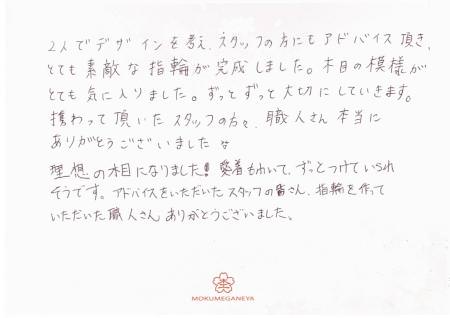 2人でデザインを考え、スタッフの方にもアドバイス頂き、
とても素敵な指輪が完成しました。木目の模様が
とても気に入りました。ずっとずっと大切にしていきます。
携わって頂いたスタッフの方々、職人さん本当に
ありがとうございました☆
理想の木目になりました！愛着もわいて、ずっとつけていられ
そうです。アドバイスをいただいたスタッフの皆さん、指輪を作って
いただいた職人さん、ありがとうございました。
MOKUMEGANEYA